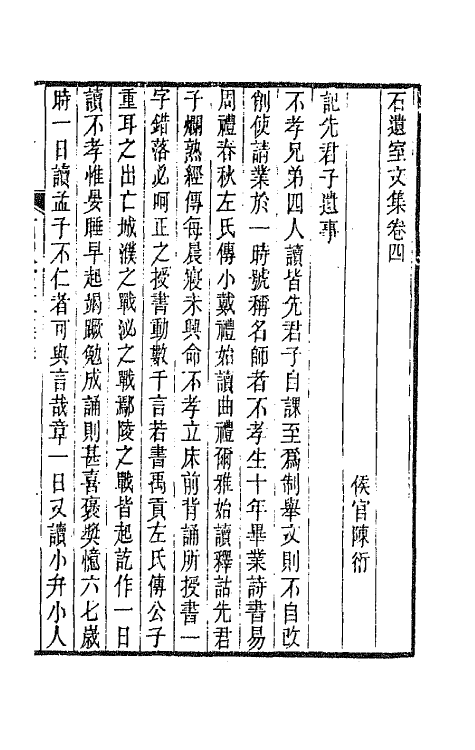 石遺室文集卷四
侯官陳衍
記先君子遺事
不孝兄弟四人讀皆先君子自課至爲制舉文則不自改
削使請業於一時號稱名師者不孝生十年畢業詩書易
周禮春秋左氏傳小戴禮始讀曲禮爾雅始讀釋詁先君
子爛熟經傳每晨寢未興命不孝立床前背誦所授書一
字錯落必呵正之授書動數千言若書禹貢左氏傳公子
重耳之出亡城濮之戰泌之戰鄢陵之戰皆起訖作一日
讀不孝惟晏睡早起竭蹶勉成誦則甚喜褒獎憶六七歲
時一日讀孟子不仁者可與言哉章一日又讀小弁小人